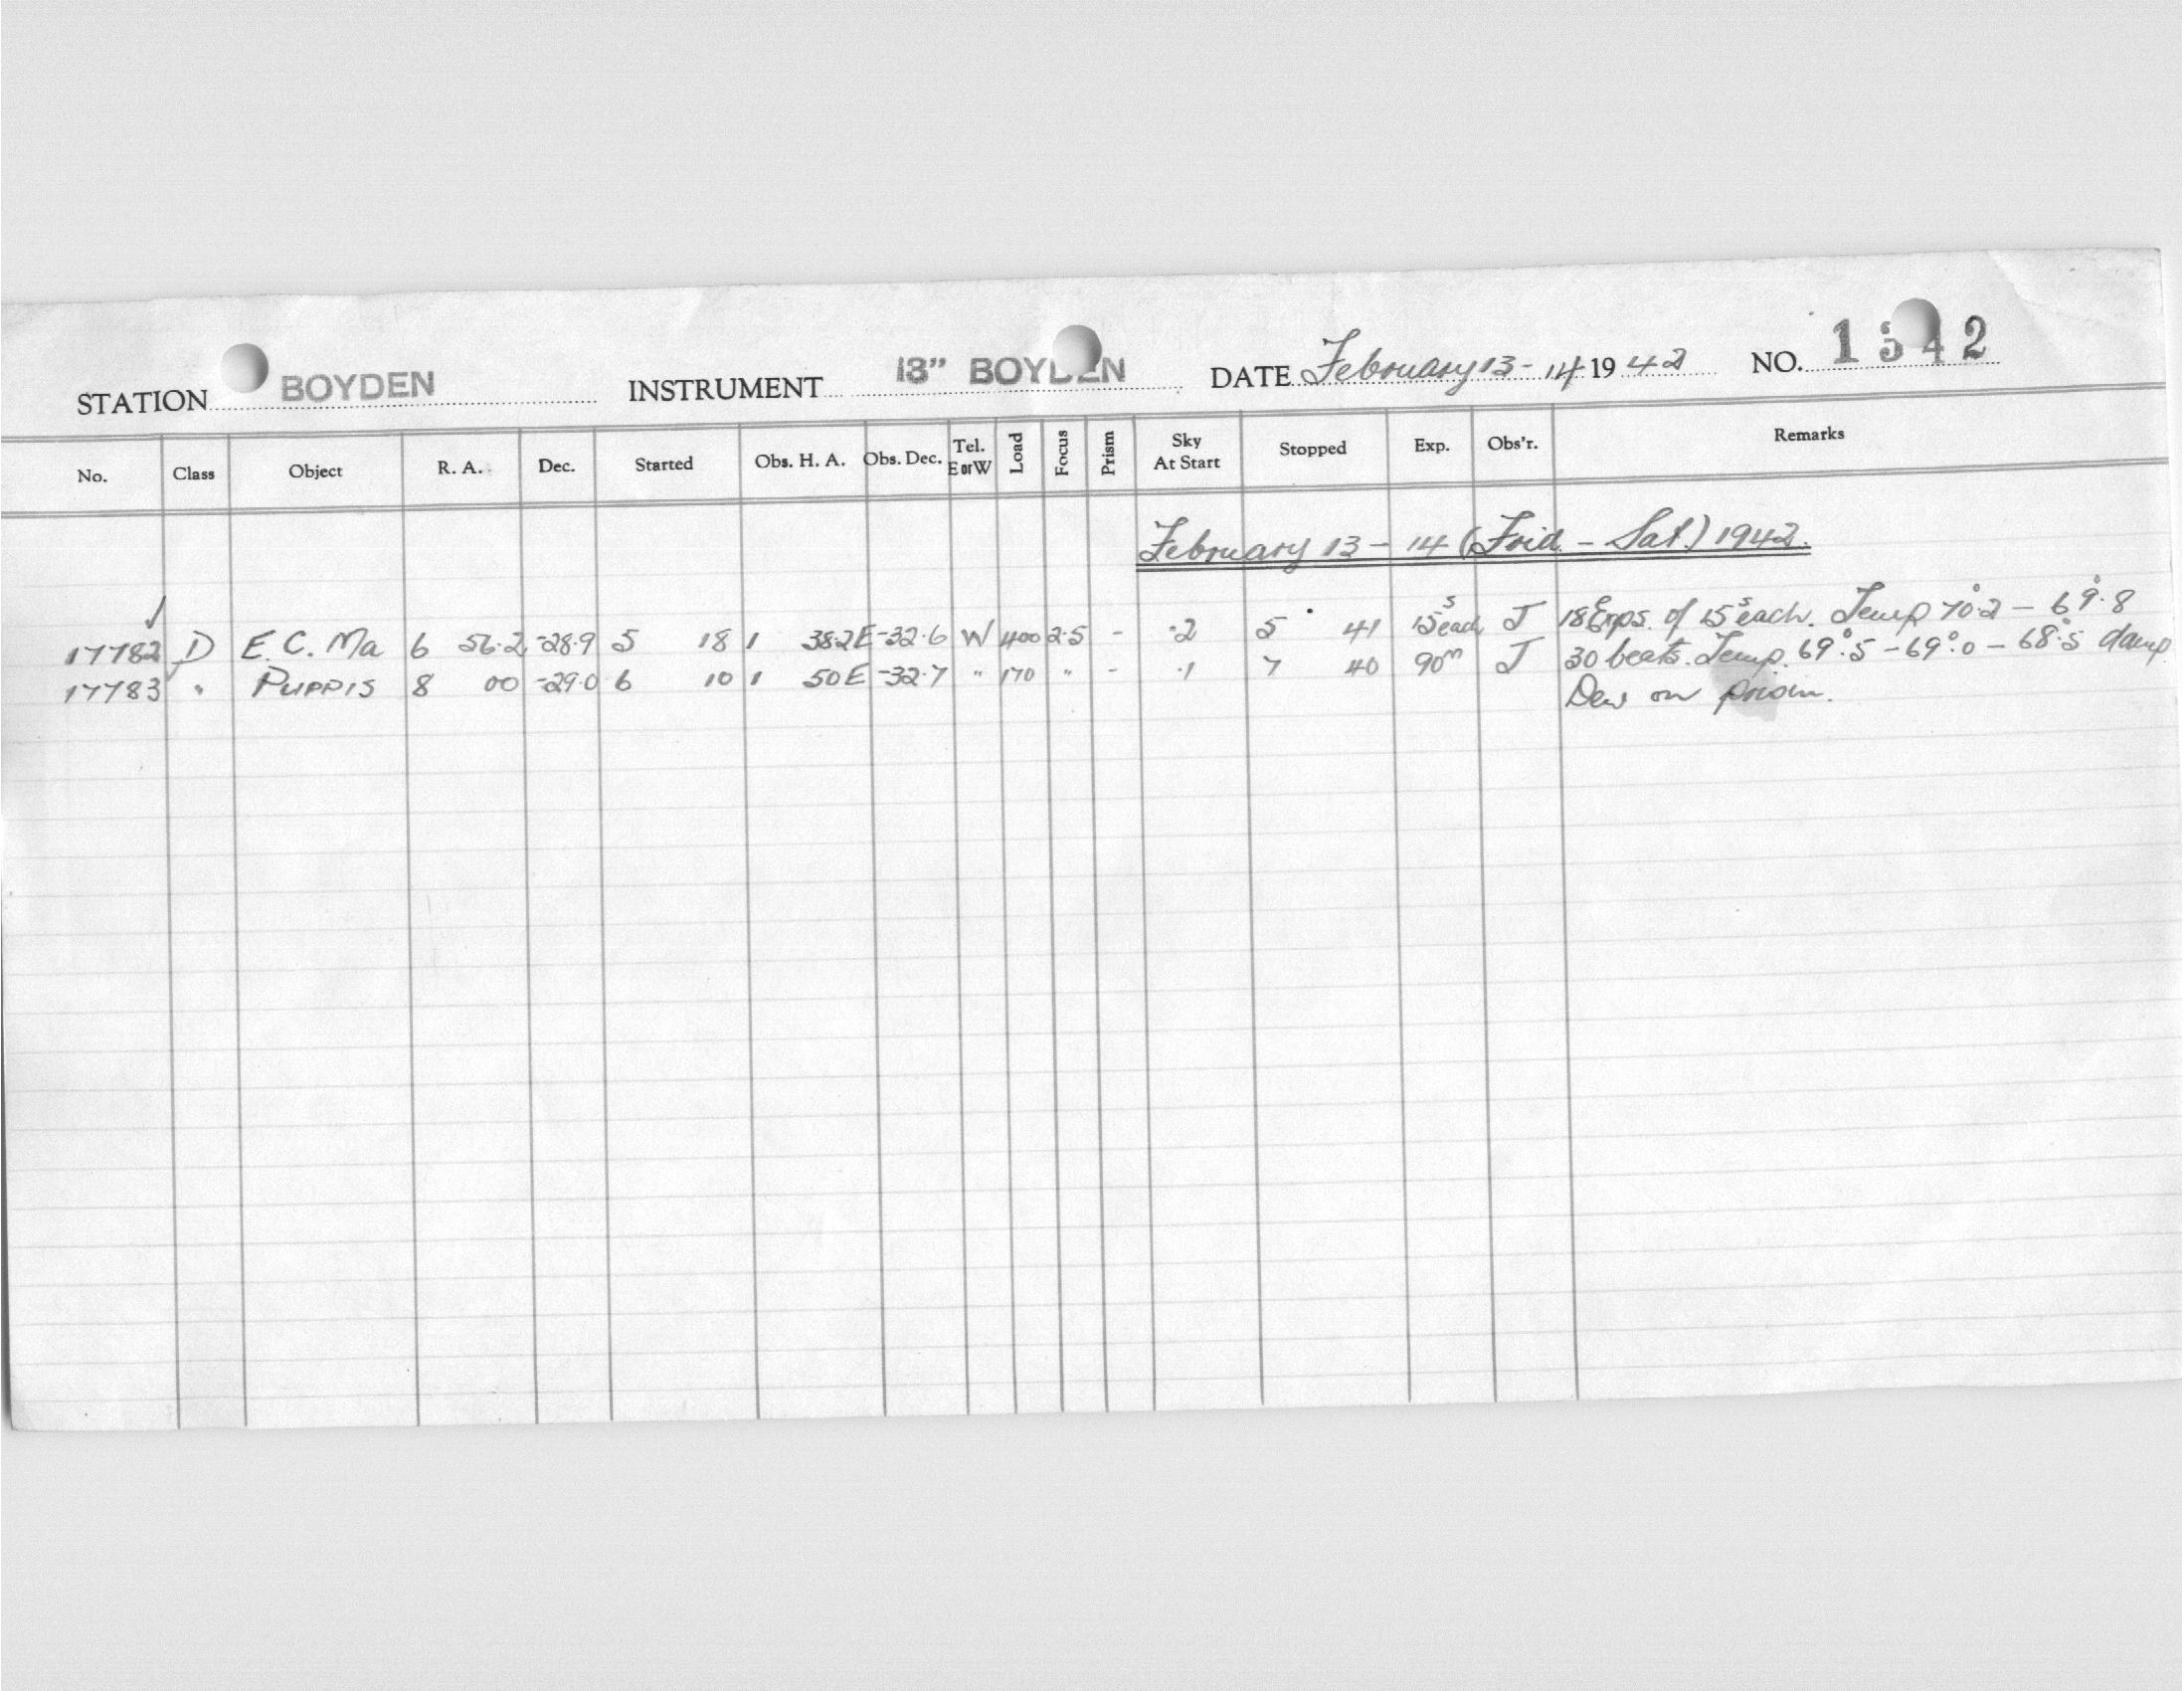 STATION BOYDEN INSTRUMENT 13" BOYDEN DATE February 13-14 1942 NO. 1342
No. Class Object R. A. Dec. Started Obs. H. A. Obs. Dec. Tel. E or W Load Focus Prism Sky At Start Stopped Exp. Obs'r. Remarks
February 13 - 14 (Frid. - Sat.) 1942.
✓
17782 D E. C. Ma 6 56.2 -28.9 5 18 1 38.2E -32.6 W 400 2.5 - .2 5 41 15s each J 18 Exps. of 15s each. Temp 70°.2 - 69°.8
17783 " PUPPIS 8 00 -29.0 6 10 1 50E -32.7 " 170 " - .1 7 40 90m J 30 beats. Temp. 69°.5 - 69°.0 - 68°.5 damp
Dew on prism.